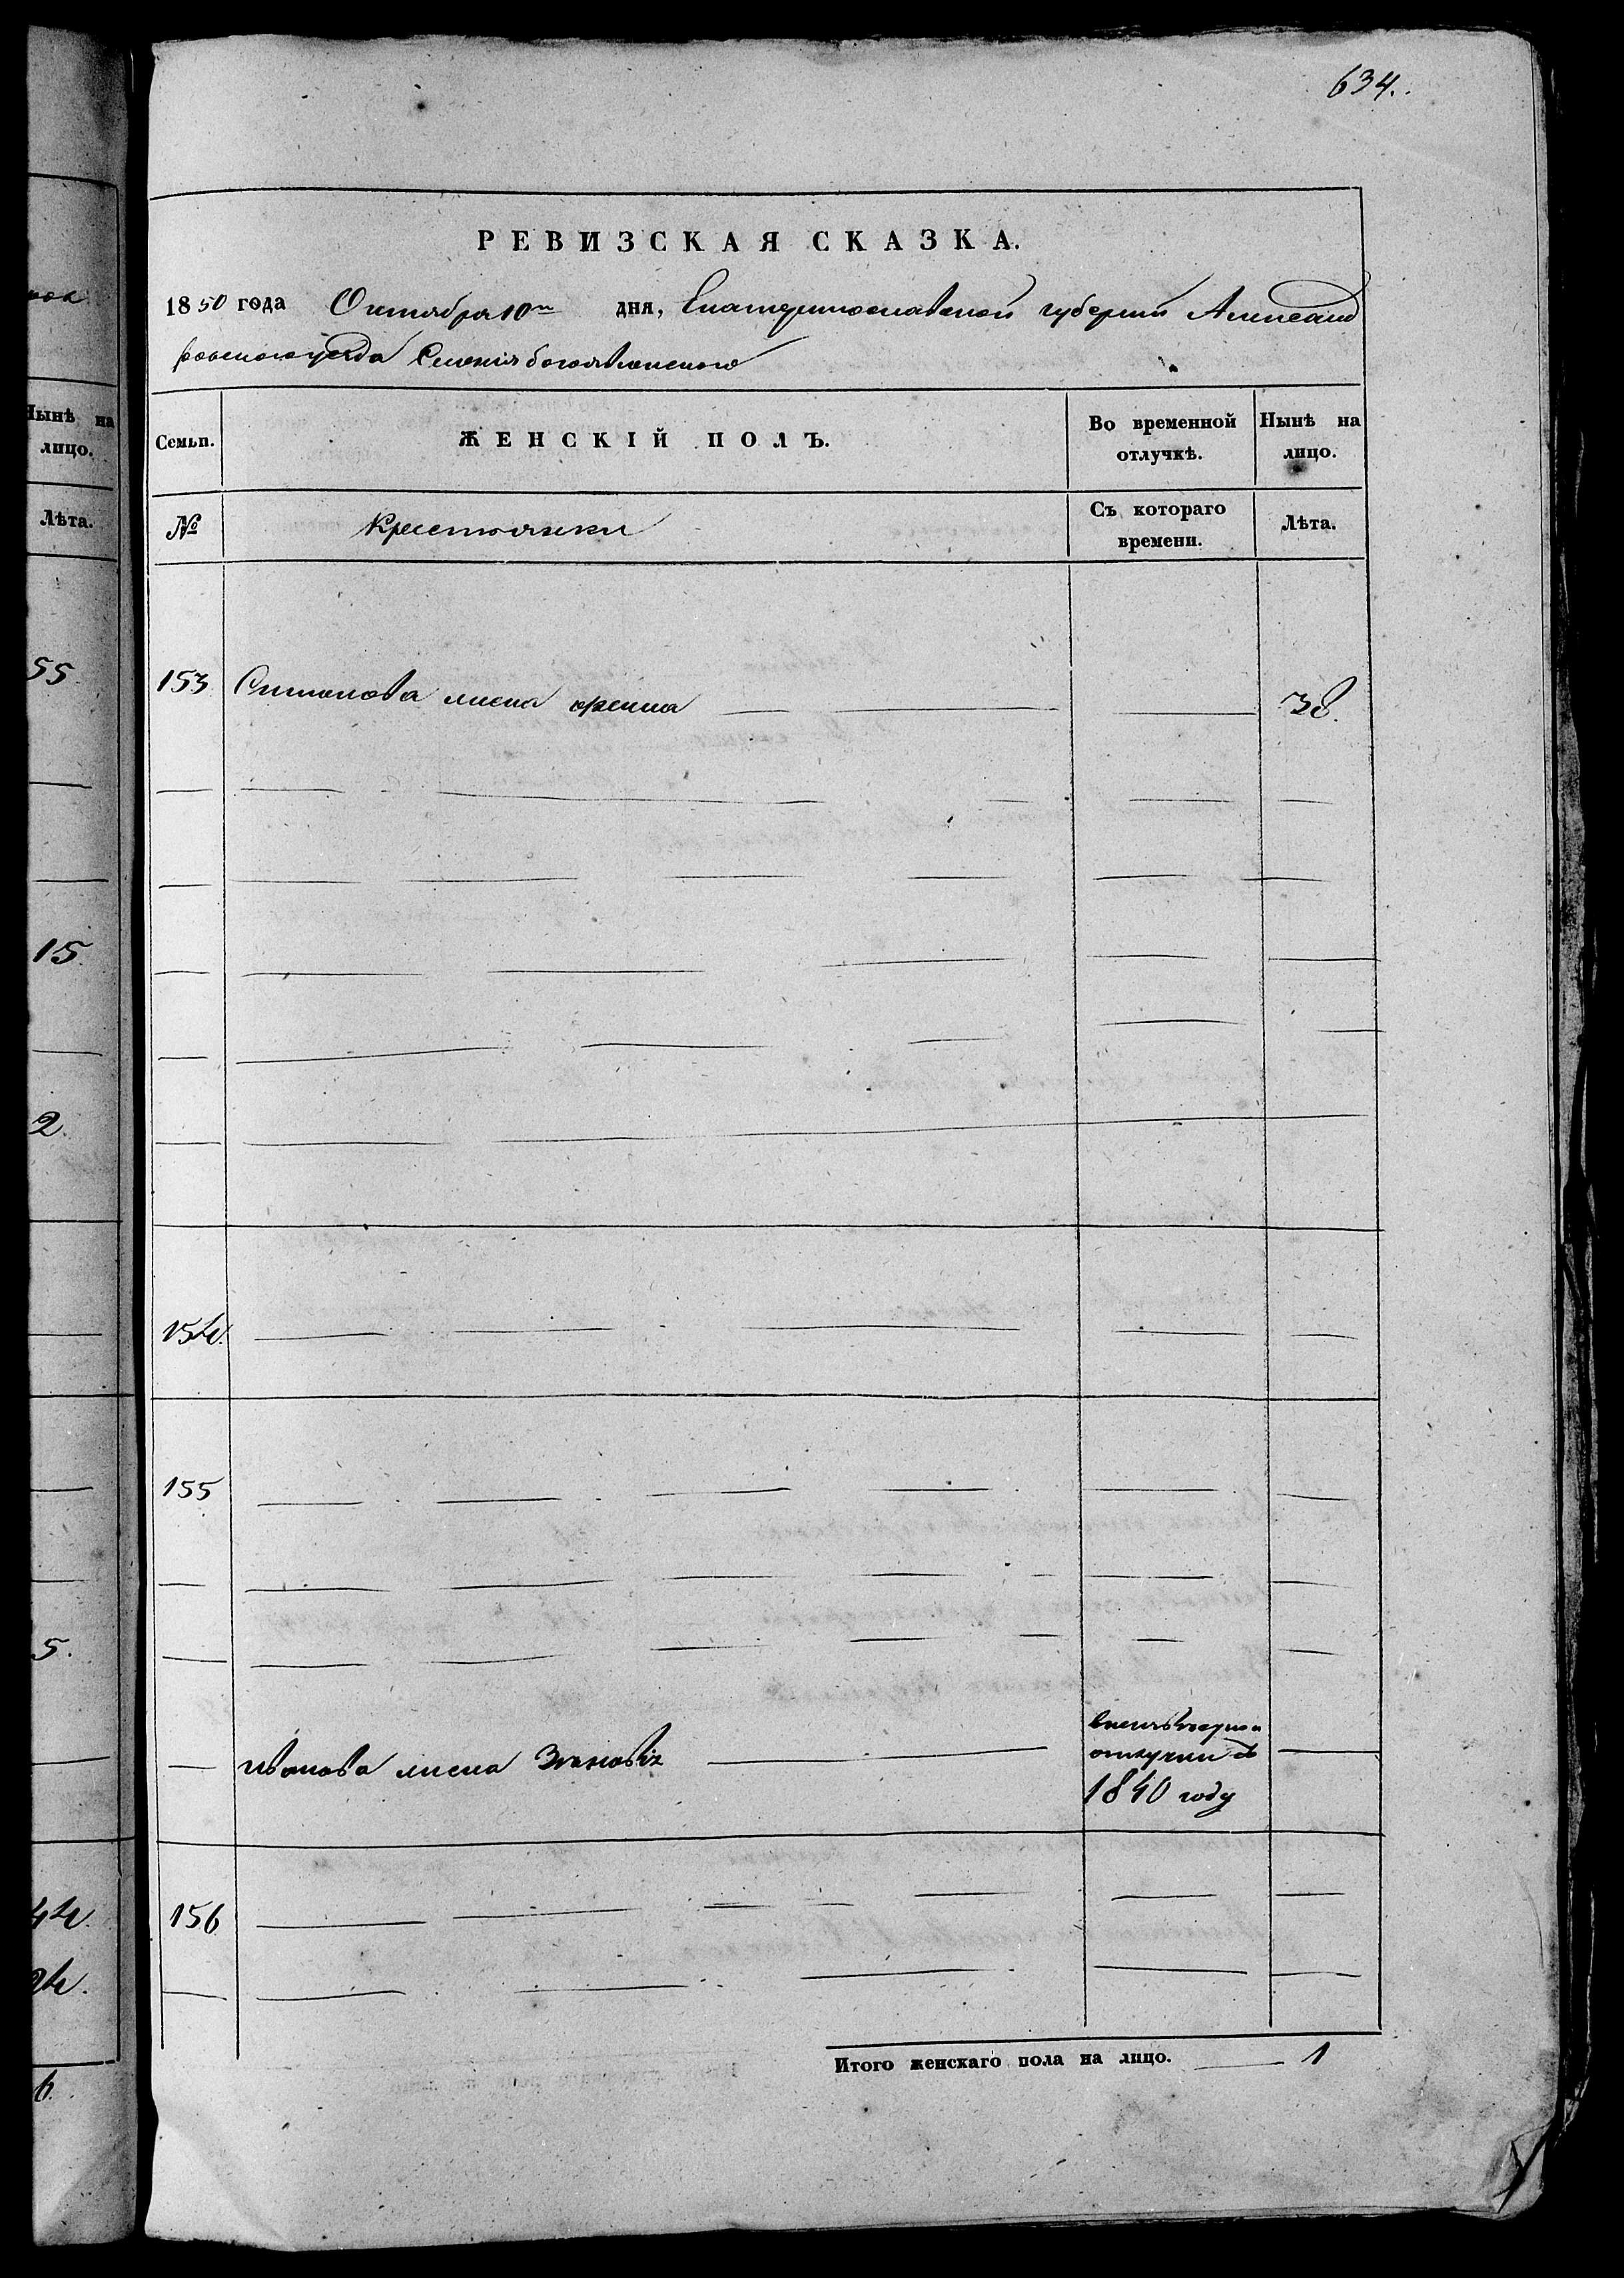 634.
РЕВИЗСКАЯ СКАЗКА.
1850 года Октября 10го дня, Екатеринославской губернии Александ
ровского уезда Селения богоявленского
Семьи. ЖЕНСКІЙ ПОЛЪ. Во временной отлучкѣ. Нынѣ на лицо.
№ Крестьянки Съ котораго времени. Лѣта.
153 Симонова жена орина 38.
154.
155
Иванова жена Зѣновія
отлучки в
1840 году
156
Итого женскаго пола на лицо. 1
Нынѣ на
лицо.
Лѣта.
55
15
2.
5.
44.
24.
6.